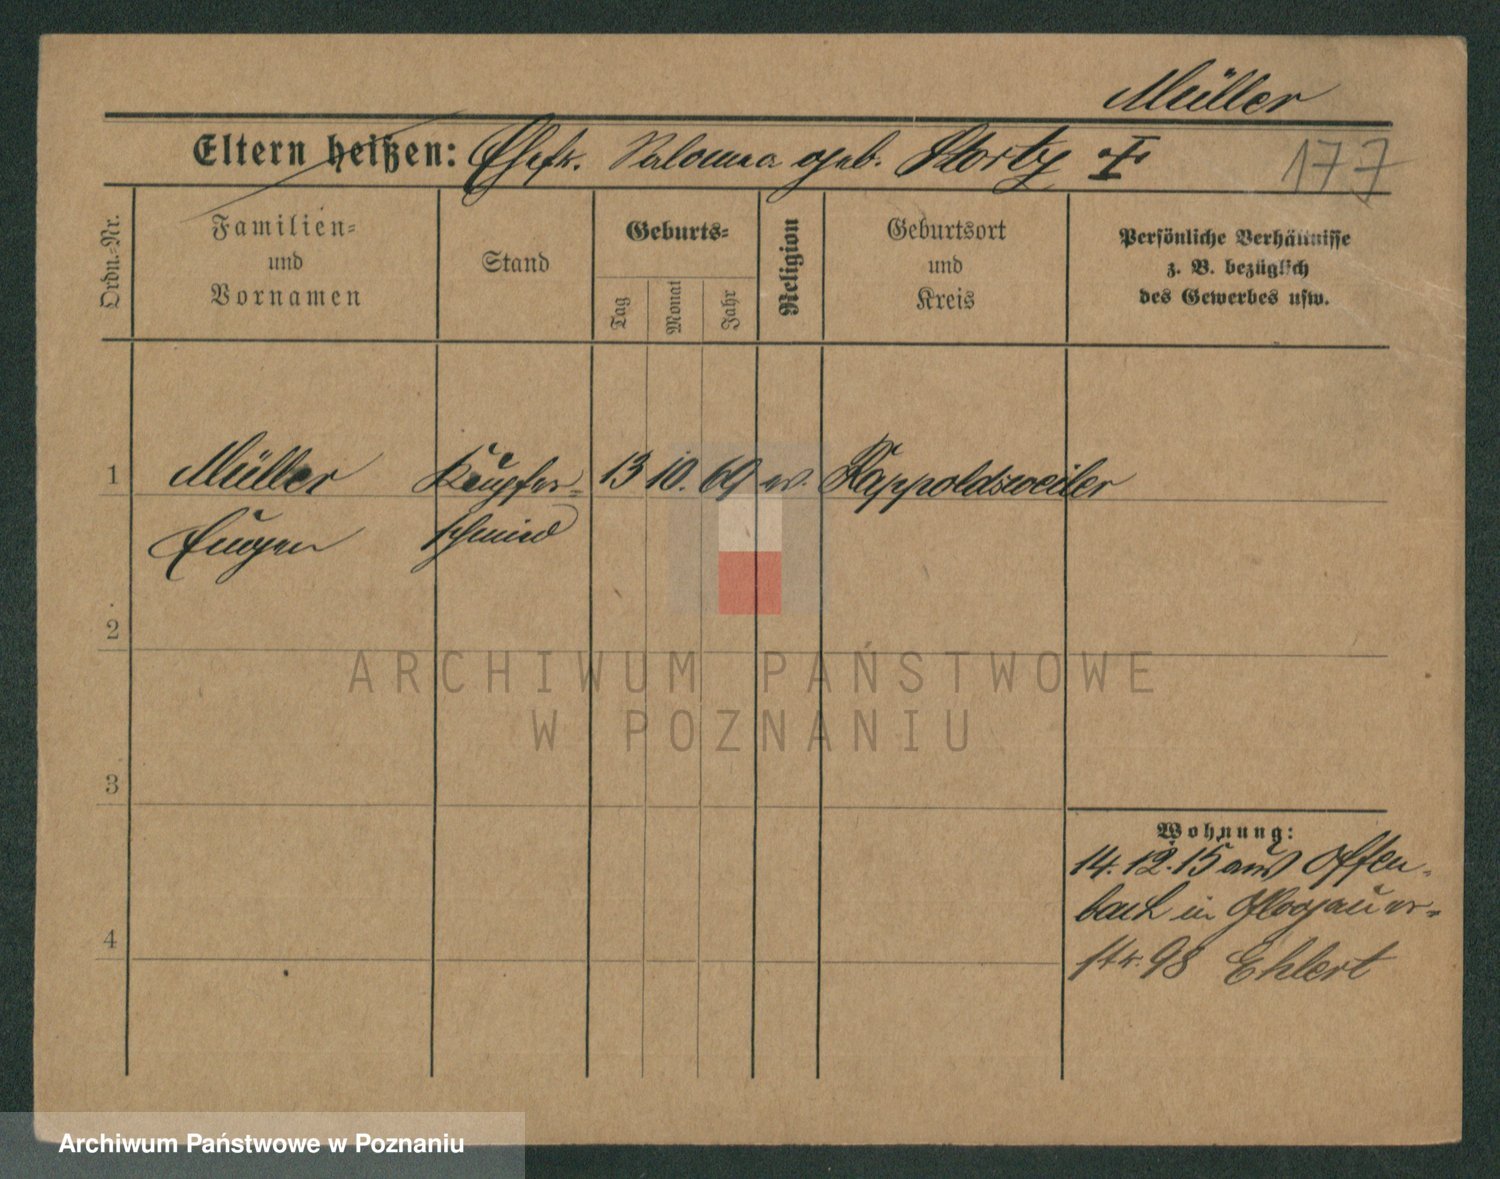 Müller
Eltern heißen: Ehefr. Saloma geb. Storty †
177
Ordn.-Nr.
Familien-
und
Vornamen
Stand
Geburts-
Tag
Monat
Jahr
Religion
Geburtsort
und
Kreis
Persönliche Verhältnisse
z. B. bezüglich
des Gewerbes usw.
1 Müller Kupfer- 13 10. 69 ev. Rappoldsweiler
Eugen schmied
2
ARCHIWUM PAŃSTWOWE
W POZNANIU
3
Wohnung:
14.12.15 aus Offen-
bach in Glogauer-
4
str. 98 Ehlert
Archiwum Państwowe w Poznaniu